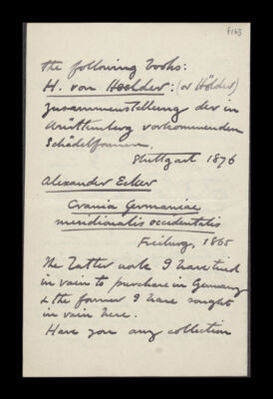 the following books:
H. von Hoelder: (or Hölder)
Zusammenstellung der in
Württemberg vorkommenden
Schädelformen.
Stuttgart 1876
Alexander Ecker
Crania Germaniae
meridionalis occidentalis
Freiburg, 1865
The latter work I have tried
in vain to purchase in Germany
& the former I have sought
in vain here.
Have you any collection